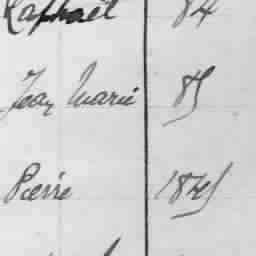 Raphaël 84
Jean Marie 85
Pierre 1845